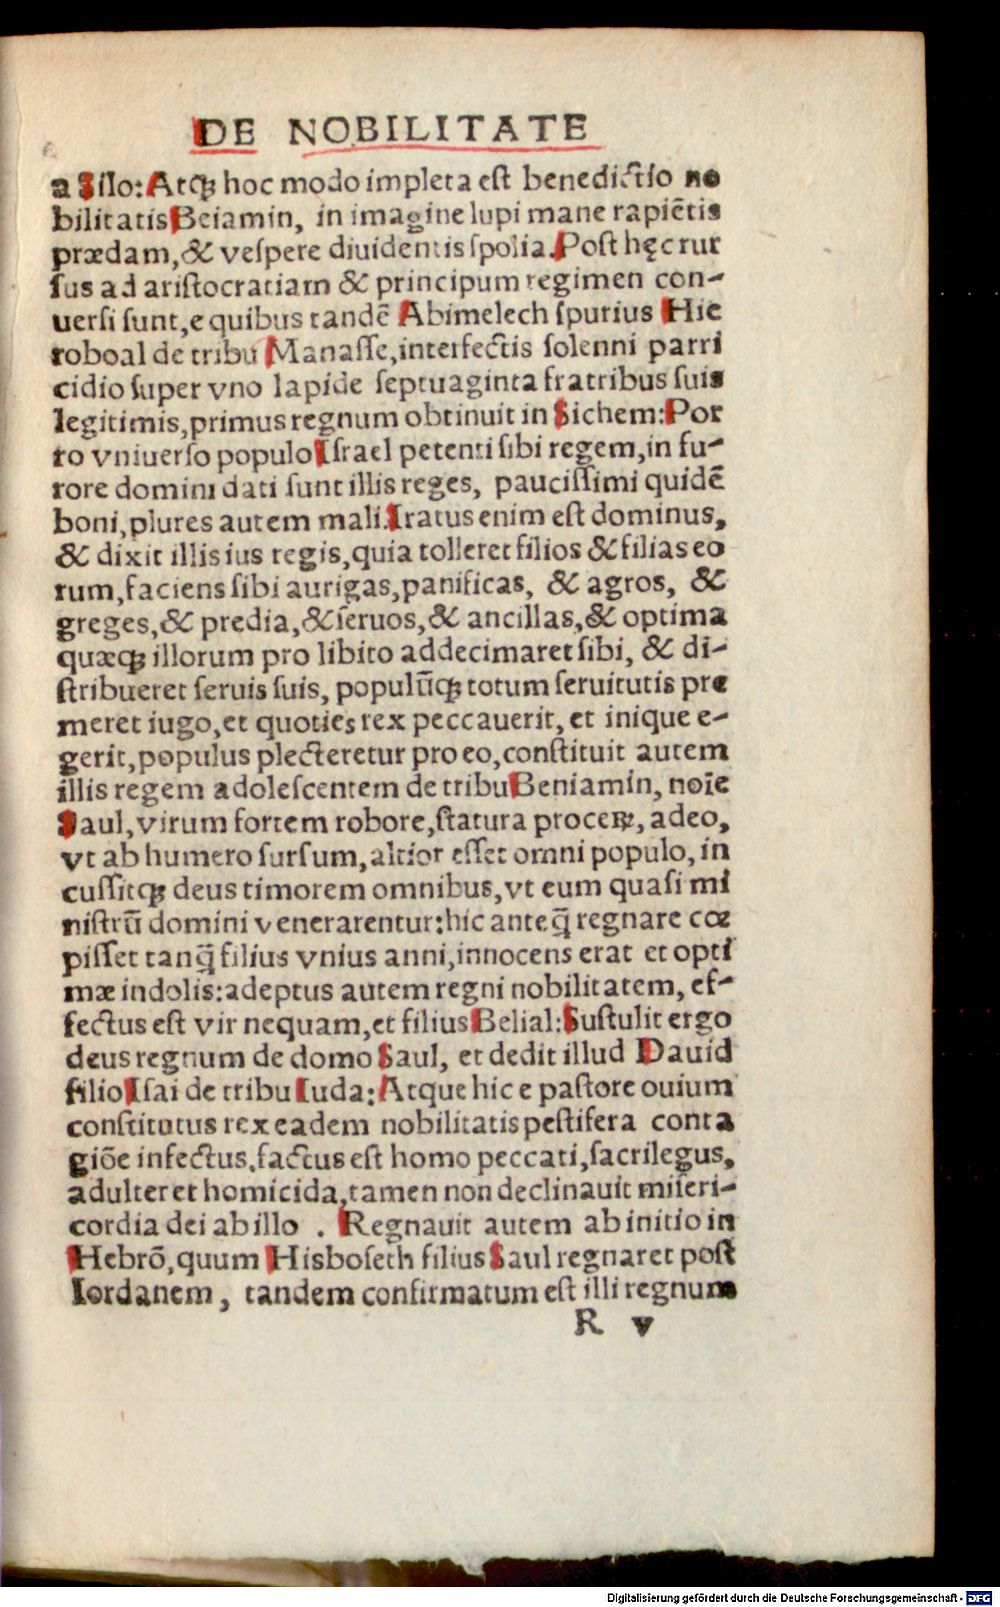 DE NOBILITATE
a Silo: Atq; hoc modo impleta est benedictio no
bilitatis Beiamin, in imagine lupi mane rapiẽtis
prædam, & vespere diuidentis spolia. Post hęc rur
sus ad aristocratiam & principum regimen con-
uersi sunt, e quibus tandẽ Abimelech spurius Hie
roboal de tribu Manasse, interfectis solenni parri
cidio super vno lapide septuaginta fratribus suis
legitimis, primus regnum obtinuit in Sichem: Por
ro vniuerso populo Israel petenti sibi regem, in fu-
rore domini dati sunt illis reges, paucissimi quidẽ
boni, plures autem mali. Iratus enim est dominus,
& dixit illis ius regis, quia tolleret filios & filias eo
rum, faciens sibi aurigas, panificas, & agros, &
greges, & predia, & seruos, & ancillas, & optima
quæq; illorum pro libito addecimaret sibi, & di-
stribueret seruis suis, populũq; totum seruitutis pre
meret iugo, et quoties rex peccauerit, et inique e-
gerit, populus plecteretur pro eo, constituit autem
illis regem adolescentem de tribu Beniamin, noĩe
Saul, virum fortem robore, statura proceꝝ, adeo,
vt ab humero sursum, altior esset omni populo, in
cussitq; deus timorem omnibus, vt eum quasi mi
nistrũ domini venerarentur: hic anteq̃ regnare cœ
pisset tanq̃ filius vnius anni, innocens erat et opti
mæ indolis: adeptus autem regni nobilitatem, ef-
fectus est vir nequam, et filius Belial: Sustulit ergo
deus regnum de domo Saul, et dedit illud Dauid
filio Isai de tribu Iuda: Atque hic e pastore ouium
constitutus rex eadem nobilitatis pestifera conta
giõe infectus, factus est homo peccati, sacrilegus,
adulter et homicida, tamen non declinauit miseri-
cordia dei ab illo . Regnauit autem ab initio in
Hebrõ, quum Hisboseth filius Saul regnaret post
Iordanem, tandem confirmatum est illi regnum
R v
Digitalisierung gefördert durch die Deutsche Forschungsgemeinschaft - DFG